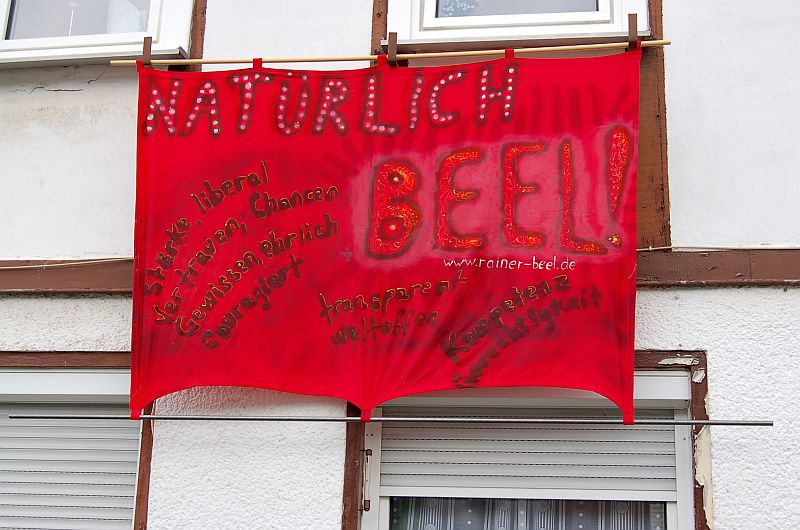 NATÜRLICH
BEEL!
www.rainer-beel.de
Stärke, liberal
Vertrauen, Chancen
Gewissen, ehrlich
couragiert
transparent
weltoffen
Kompetenz
Gerechtigkeit